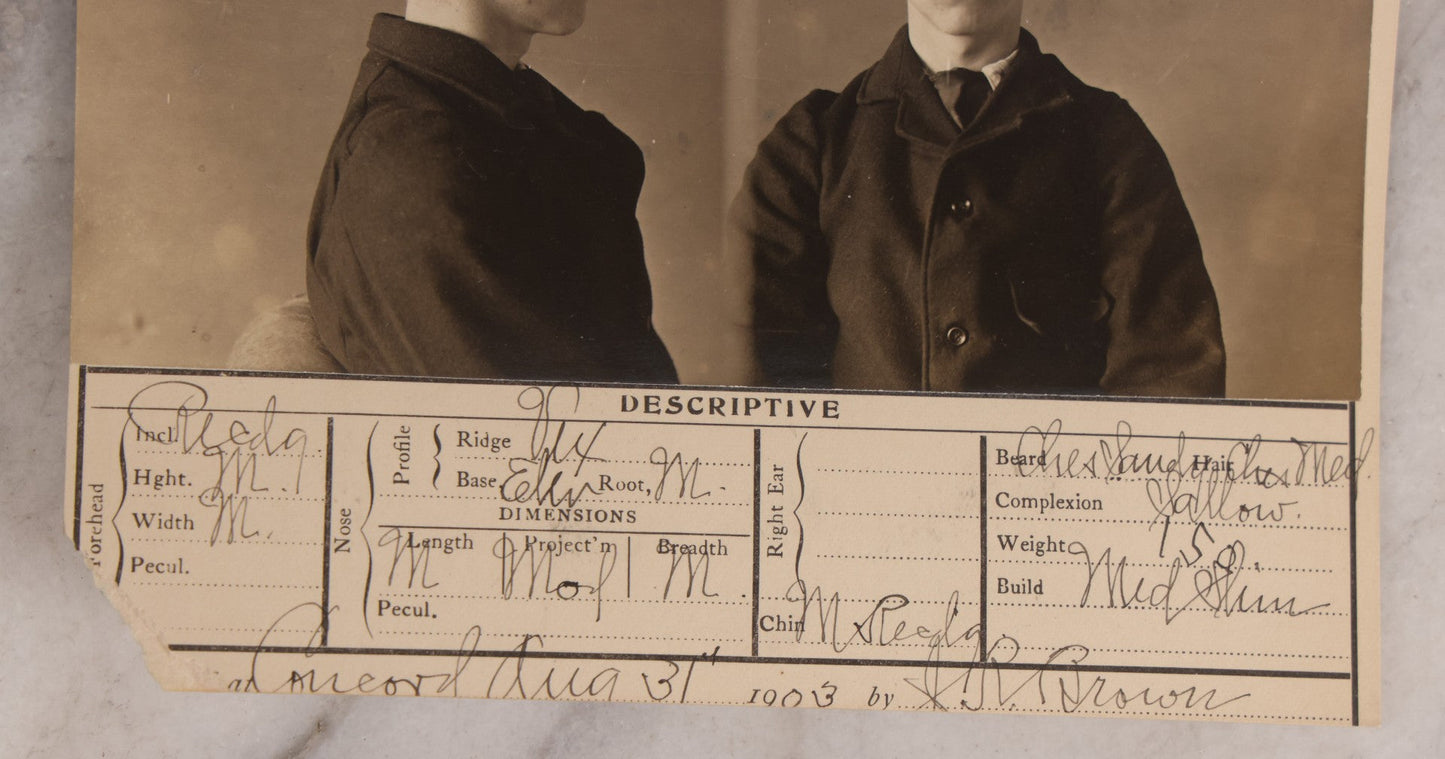 DESCRIPTIVE
Forehead
Incl. Recdg.
Hght. M.
Width M.
Pecul.
Nose
Profile
Ridge Vex
Base Elev Root, M.
DIMENSIONS
Length Project'n Breadth
M Mod M.
Pecul.
Right Ear
Chin M Recdg.
Beard Ches Sandy Hair Ches Med.
Complexion Sallow.
Weight 150
Build Med Slim
at Concord Aug 31" 1903 by J. R. Brown